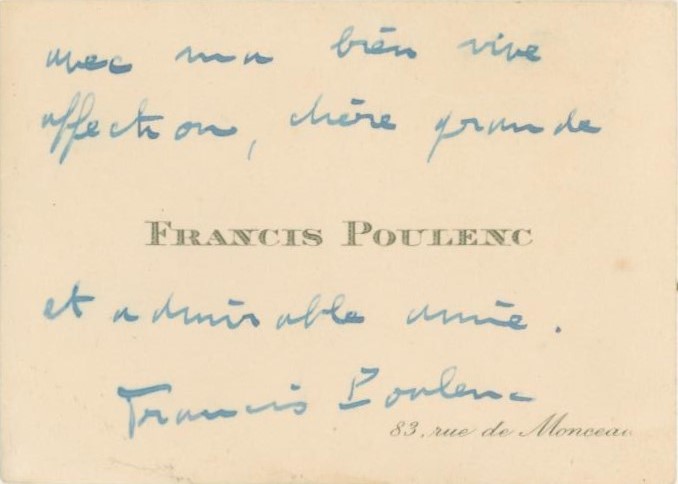 avec ma bien vive
affection, chère grande
FRANCIS POULENC
et admirable amie.
Francis Poulenc
83, rue de Monceau